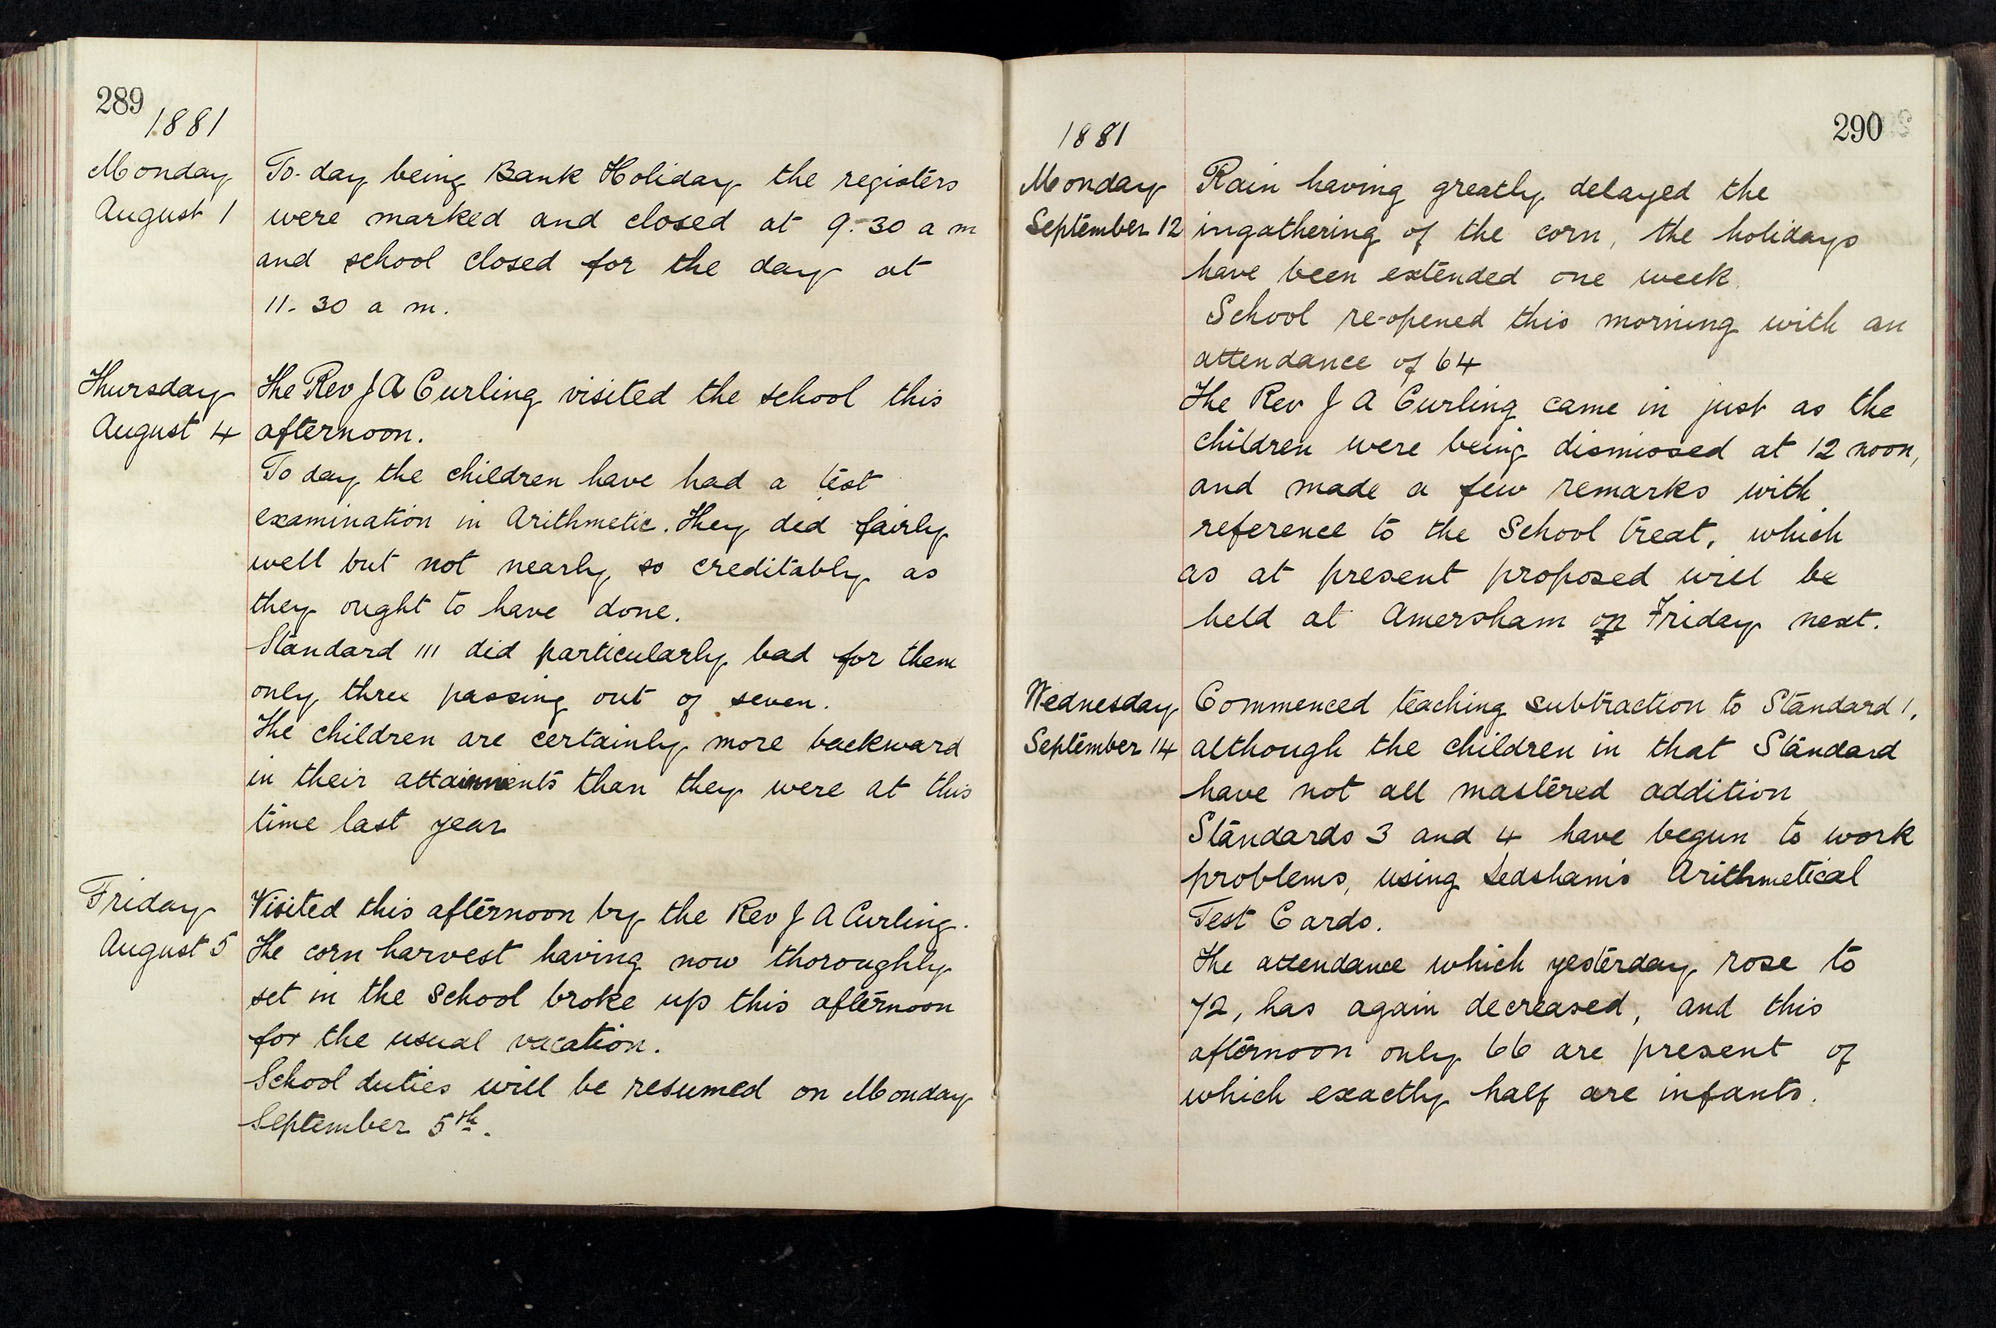 289
1881
Monday
August 1
To-day being Bank Holiday the registers
were marked and closed at 9-30 a m
and school closed for the day at
11-30 a m.
Thursday
August 4
The Rev J A Curling visited the school this
afternoon.
To day the children have had a test
examination in Arithmetic. They did fairly
well but not nearly so creditably as
they ought to have done.
Standard III did particularly bad for them
only three passing out of seven.
The children are certainly more backward
in their attainments than they were at this
time last year
Friday
August 5
Visited this afternoon by the Rev J A Curling.
The corn harvest having now thoroughly
set in the School broke up this afternoon
for the usual vacation.
School duties will be resumed on Monday
September 5th.
290
1881
Monday
September 12
Rain having greatly delayed the
ingathering of the corn, the holidays
have been extended one week
School re-opened this morning with an
attendance of 64
The Rev J A Curling came in just as the
children were being dismissed at 12 noon,
and made a few remarks with
reference to the School treat, which
as at present proposed will be
held at Amersham on Friday next.
Wednesday
September 14
Commenced teaching subtraction to Standard 1,
although the children in that Standard
have not all mastered addition
Standards 3 and 4 have begun to work
problems, using Ledsham's Arithmetical
Test Cards.
The attendance which yesterday rose to
72, has again decreased, and this
afternoon only 66 are present of
which exactly half are infants.